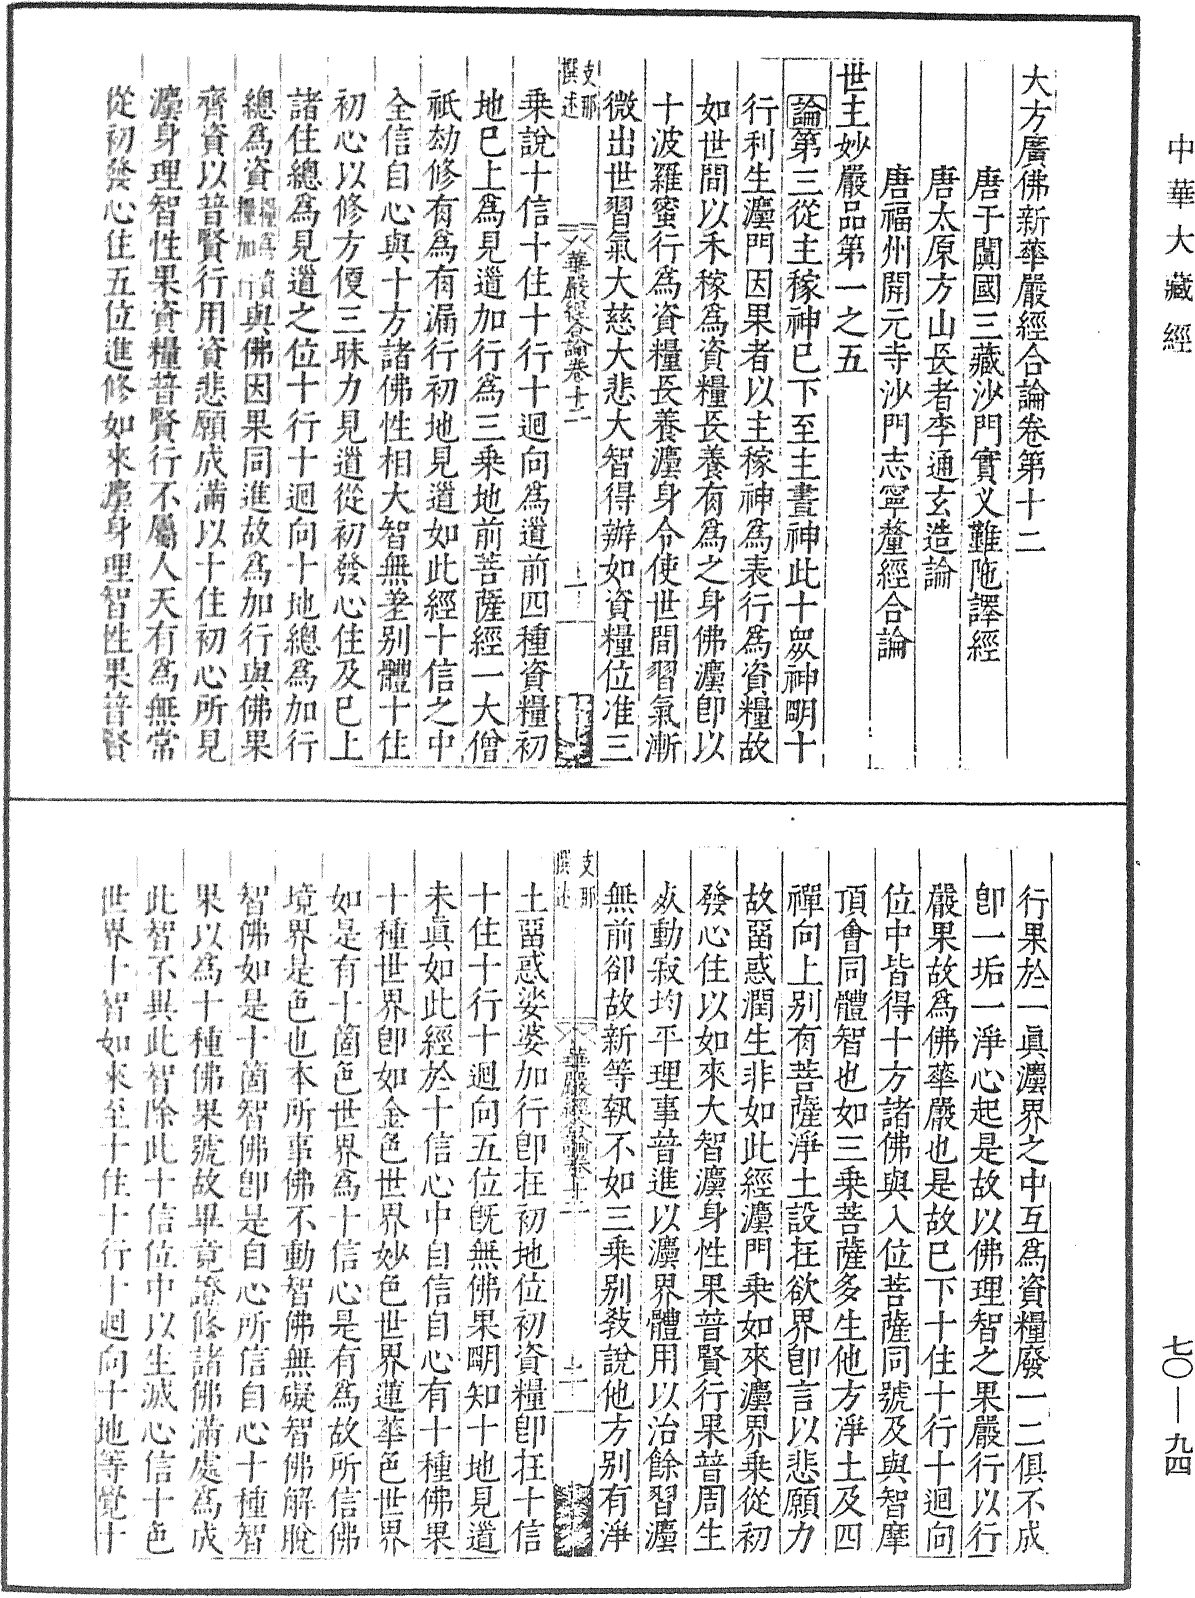 中華大藏經
大方廣佛新華嚴經合論卷第十二
唐于闐國三藏沙門實叉難陁譯經
唐太原方山長者李通玄造論
唐福州開元寺沙門志寧釐經合論
世主妙嚴品第一之五
論第三從主稼神已下至主晝神此十衆神明十
行利生灋門因果者以主稼神爲表行爲資糧故
如世間以禾稼爲資糧長養有爲之身佛灋卽以
十波羅蜜行爲資糧長養灋身令使世間習氣漸
微出世習氣大慈大悲大智得辦如資糧位准三
支那撰述
華嚴經合論卷十二
一
乘說十信十住十行十迴向爲道前四種資糧初
地已上爲見道加行爲三乘地前菩薩經一大僧
祇劫修有爲有漏行初地見道如此經十信之中
全信自心與十方諸佛性相大智無差別體十住
初心以修方便三昧力見道從初發心住及已上
諸住總爲見道之位十行十迴向十地總爲加行
總爲資糧與佛因果同進故爲加行與佛果
齊資以普賢行用資悲願成滿以十住初心所見
灋身理智性果資糧普賢行不屬人天有爲無常
從初發心住五位進修如來灋身理智性果普賢
行果於一眞灋界之中互爲資糧廢一二俱不成
卽一垢一淨心起是故以佛理智之果嚴行以行
嚴果故爲佛華嚴也是故已下十住十行十迴向
位中皆得十方諸佛與入位菩薩同號及與智摩
頂會同體智也如三乘菩薩多生他方淨土及四
禪向上別有菩薩淨土設在欲界卽言以悲願力
故留惑潤生非如此經灋門乘如來灋界乘從初
發心住以如來大智灋身性果普賢行果普周生
𣦸動寂均平理事普進以灋界體用以治餘習灋
無前卻故新等執不如三乘別教說他方別有淨
支那撰述
華嚴經合論卷十二
土留惑娑婆加行卽在初地位初資糧卽在十信
十住十行十迴向五位旣無佛果明知十地見道
未眞如此經於十信心中自信自心有十種佛果
十種世界卽如金色世界妙色世界蓮華色世界
如是有十箇色世界爲十信心是有爲故所信佛
境界是色也本所事佛不動智佛無礙智佛解脫
智佛如是十箇智佛卽是自心所信自心十種智
果以爲十種佛果號故畢竟證修諸佛滿處爲成
此智不異此智除此十信位中以生滅心信十色
世界十智如來至十住十行十迴向十地等覺十
七〇—九四